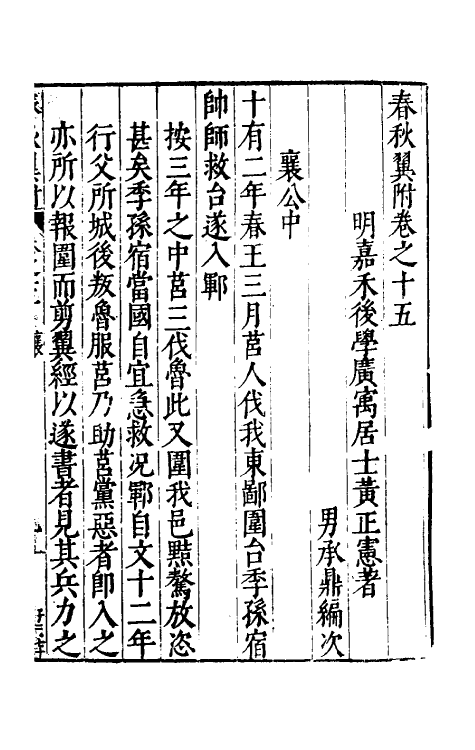 春秋翼附卷之十五
明嘉禾後學廣寓居士黃正憲著
男承鼎編次
襄公中
十有二年春王三月莒人伐我東鄙圍台季孫宿
帥師救台遂入鄆
按三年之中莒三伐魯此又圍我邑黠驁放恣
甚矣季孫宿當國自宜急救况鄆自文十二年
行父所城後叛魯服莒乃助莒黨惡者卽入之
亦所以報圍而剪翼經以遂書者見其兵力之